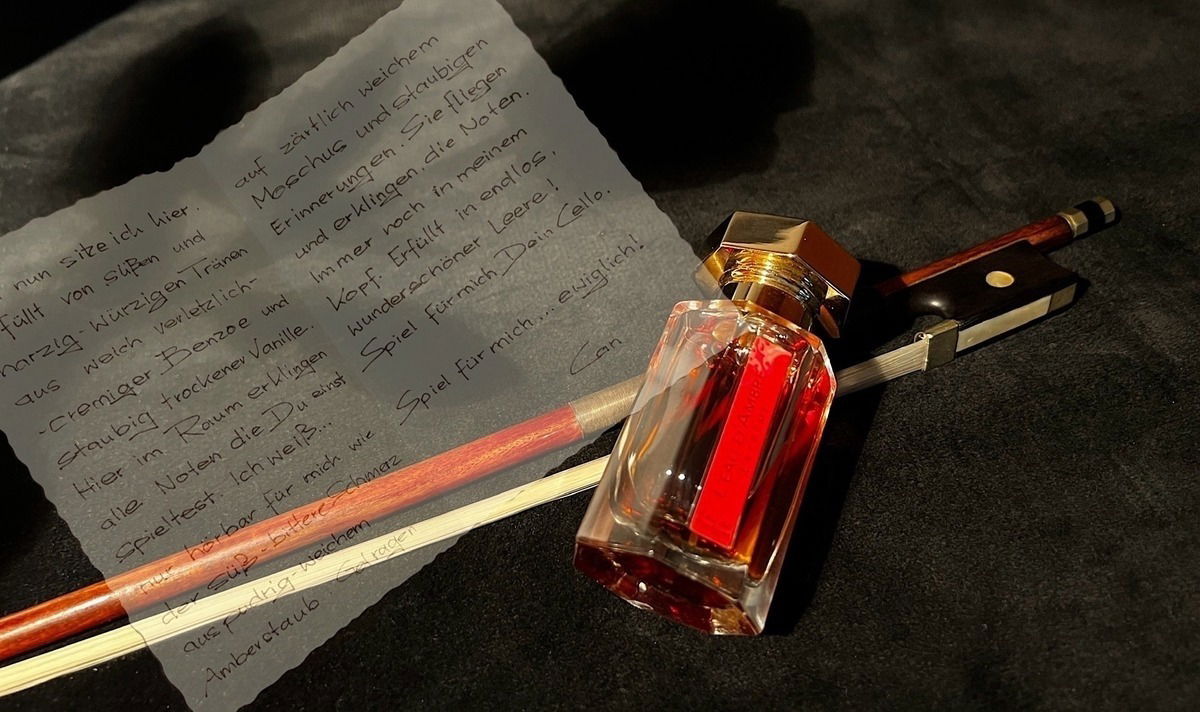 nun sitze ich hier.
füllt von süßen und
harzig-würzigen Tränen
aus weich verletzlich-
-cremiger Benzoe und
staubig trockener Vanille.
Hier im Raum erklingen
alle Noten die Du einst
spieltest. Ich weiß...
nur hörbar für mich wie
der süß-bittere Schmerz
aus pudrig-weichem
Amberstaub. Getragen
auf zärtlich weichem
Moschus und staubigen
Erinnerungen. Sie fliegen
und erklingen, die Noten.
Immer noch in meinem
Kopf. Erfüllt in endlos,
wunderschöner Leere!
Spiel für mich Dein Cello.
Spiel für mich... ewiglich!
Can
L'EAU D'AMBRE